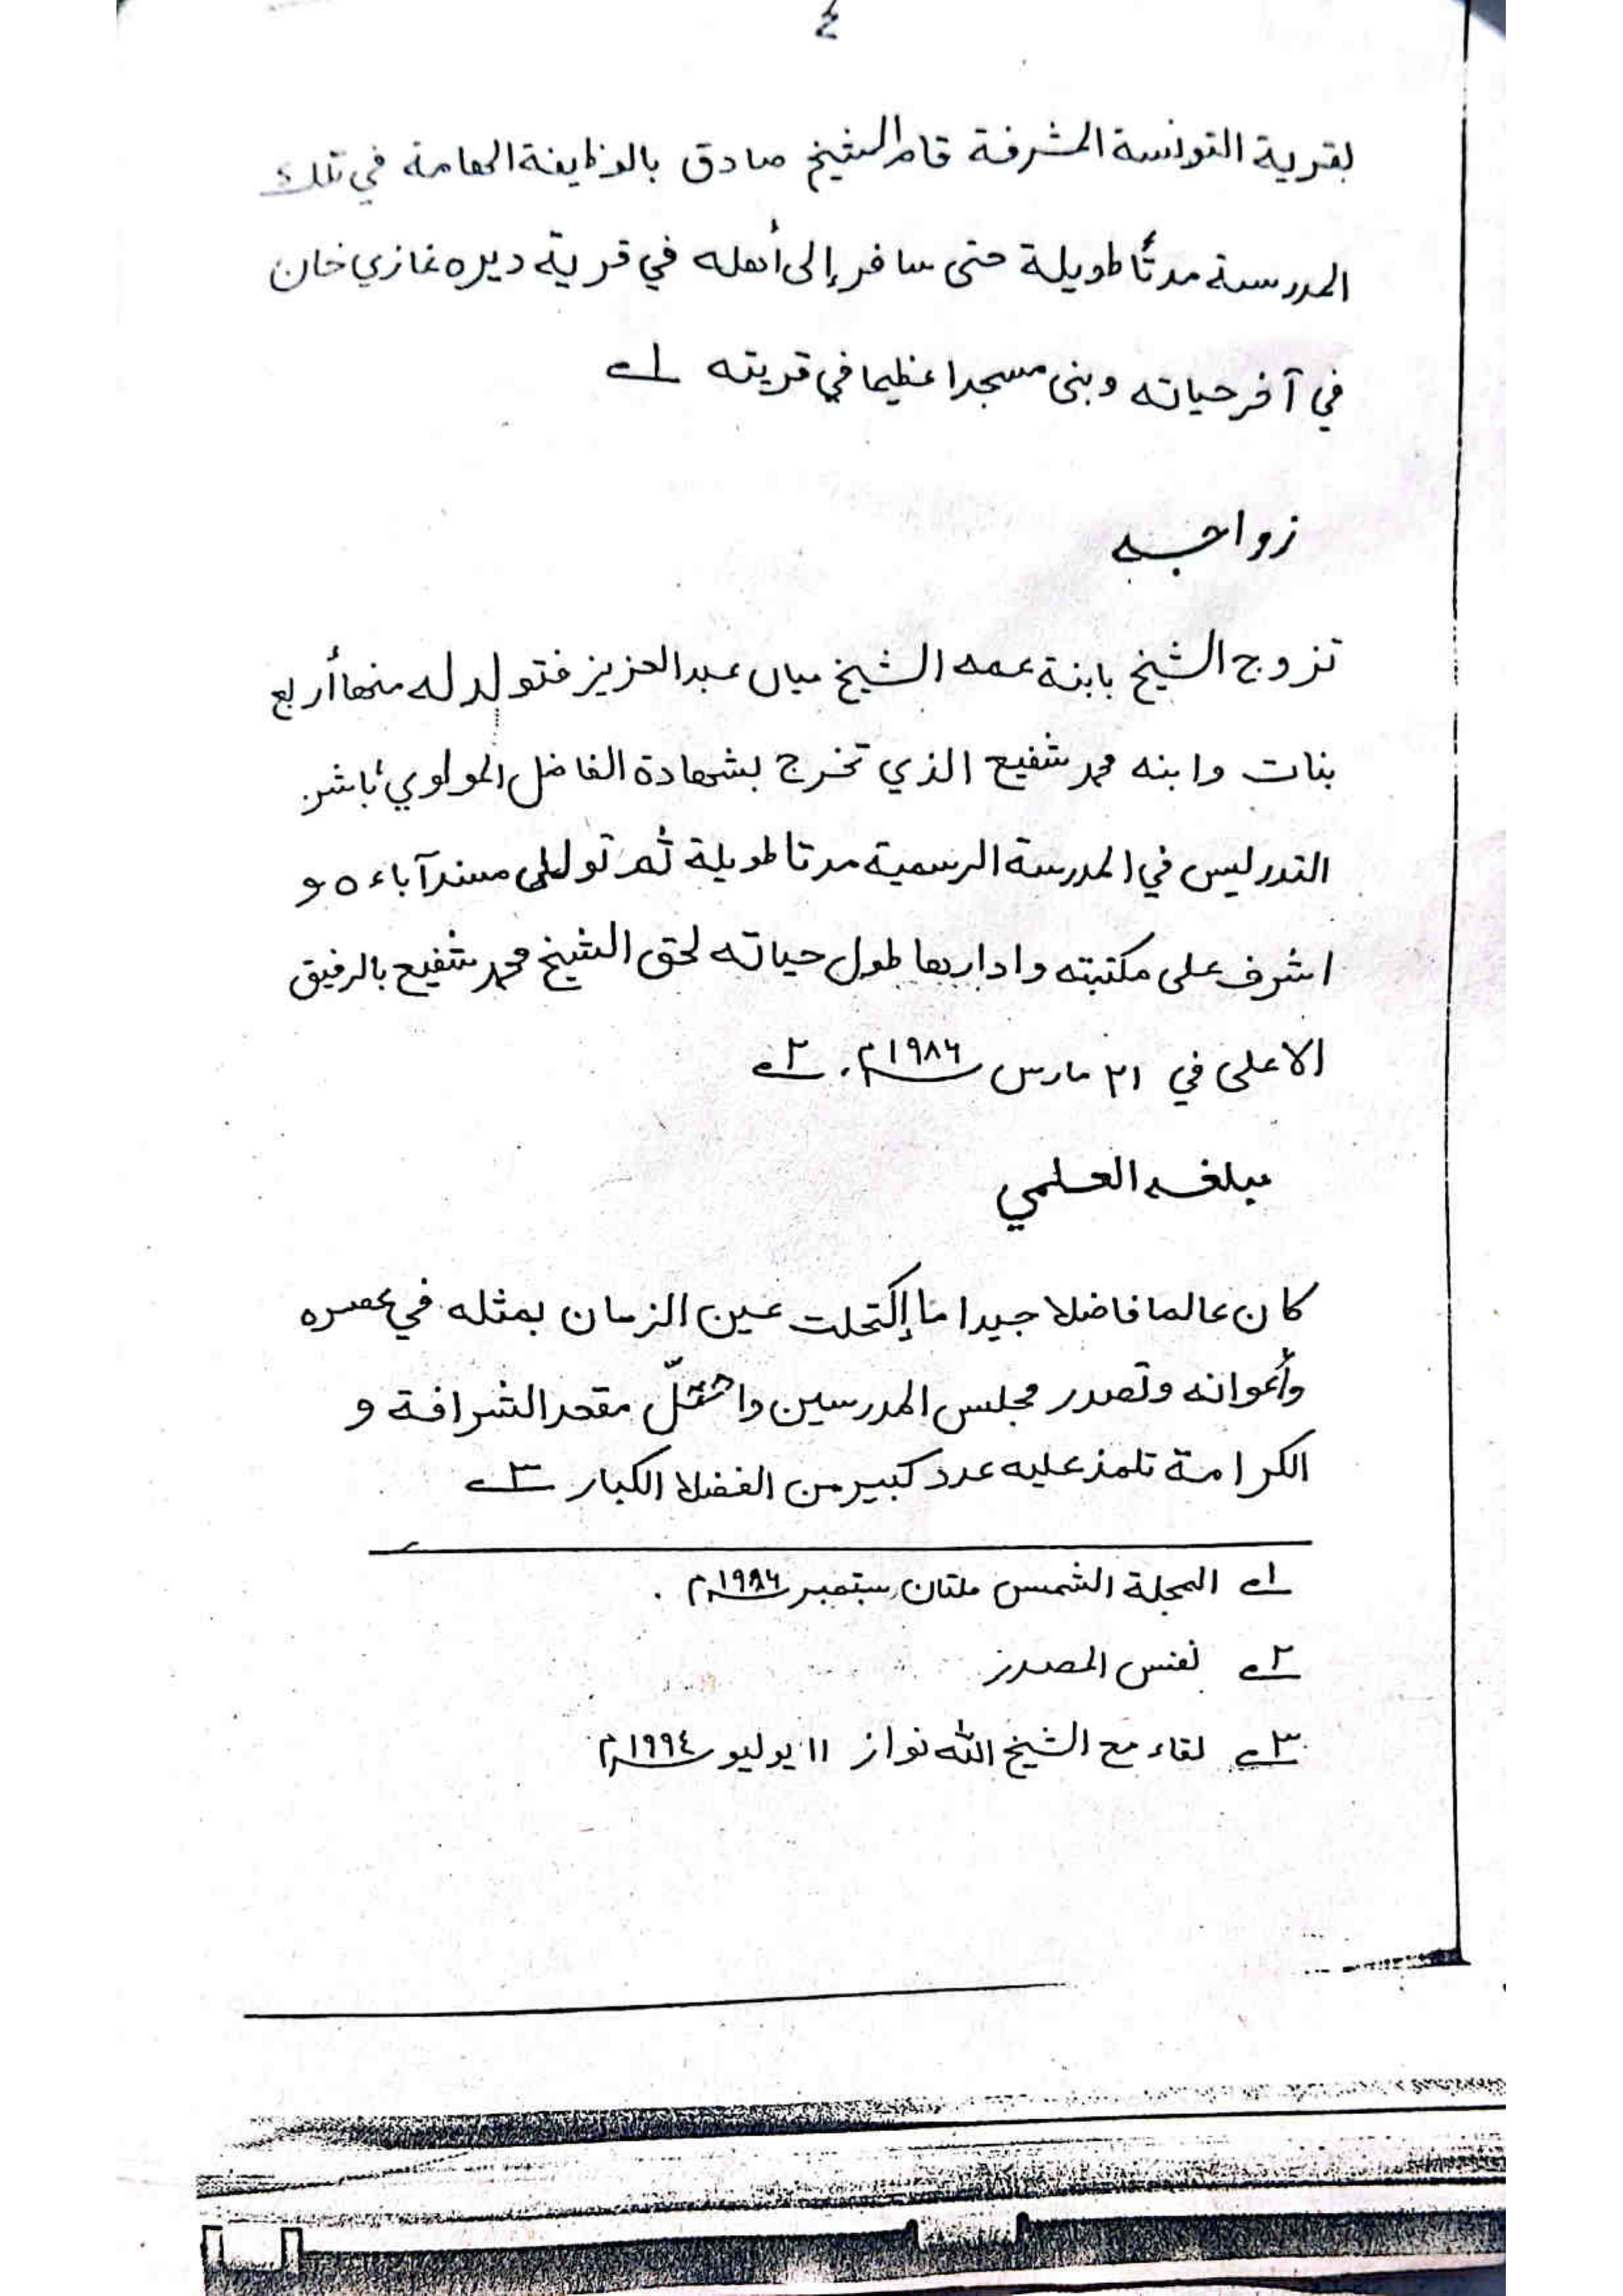 ٤
بقرية التونسة المشرفة قام الشيخ صادق بالوظايفة الهامة في تلك
المدرسة مدتًا طويلة حتى سافر إلى أهله في قرية ديره غازي خان
في آخر حياته وبنى مسجدا عظيما في قريته ١ـ
زواجه
تزوج الشيخ بابنة عمه الشيخ ميان عبدالعزيز فتولد له منها أربع
بنات وابنه محمد شفيع الذي تخرج بشهادة الفاضل المولوي باشر
التدريس في المدرسة الرسمية مدتا طويلة ثم تولى مسند آباءه و
اشرف على مكتبته وادارها طول حياته لحق الشيخ محمد شفيع بالرفيق
الاعلى في ٢١ مارس ١٩٨٦م. ٢ـ
مبلغه العلمي
كان عالما فاضلا جيدا ما إكتحلت عين الزمان بمثله في عصره
وأعوانه وتصدر مجلس المدرسين واحتلّ مقعد الشرافة و
الكرامة تلمذ عليه عدد كبير من الفضلا الكبار ٣ـ
١ـ المجلة الشمس ملتان سبتمبر ١٩٨٦م.
٢ـ نفس المصدر
٣ـ لقاء مع الشيخ الله نواز ١١ يوليو ١٩٩٤م